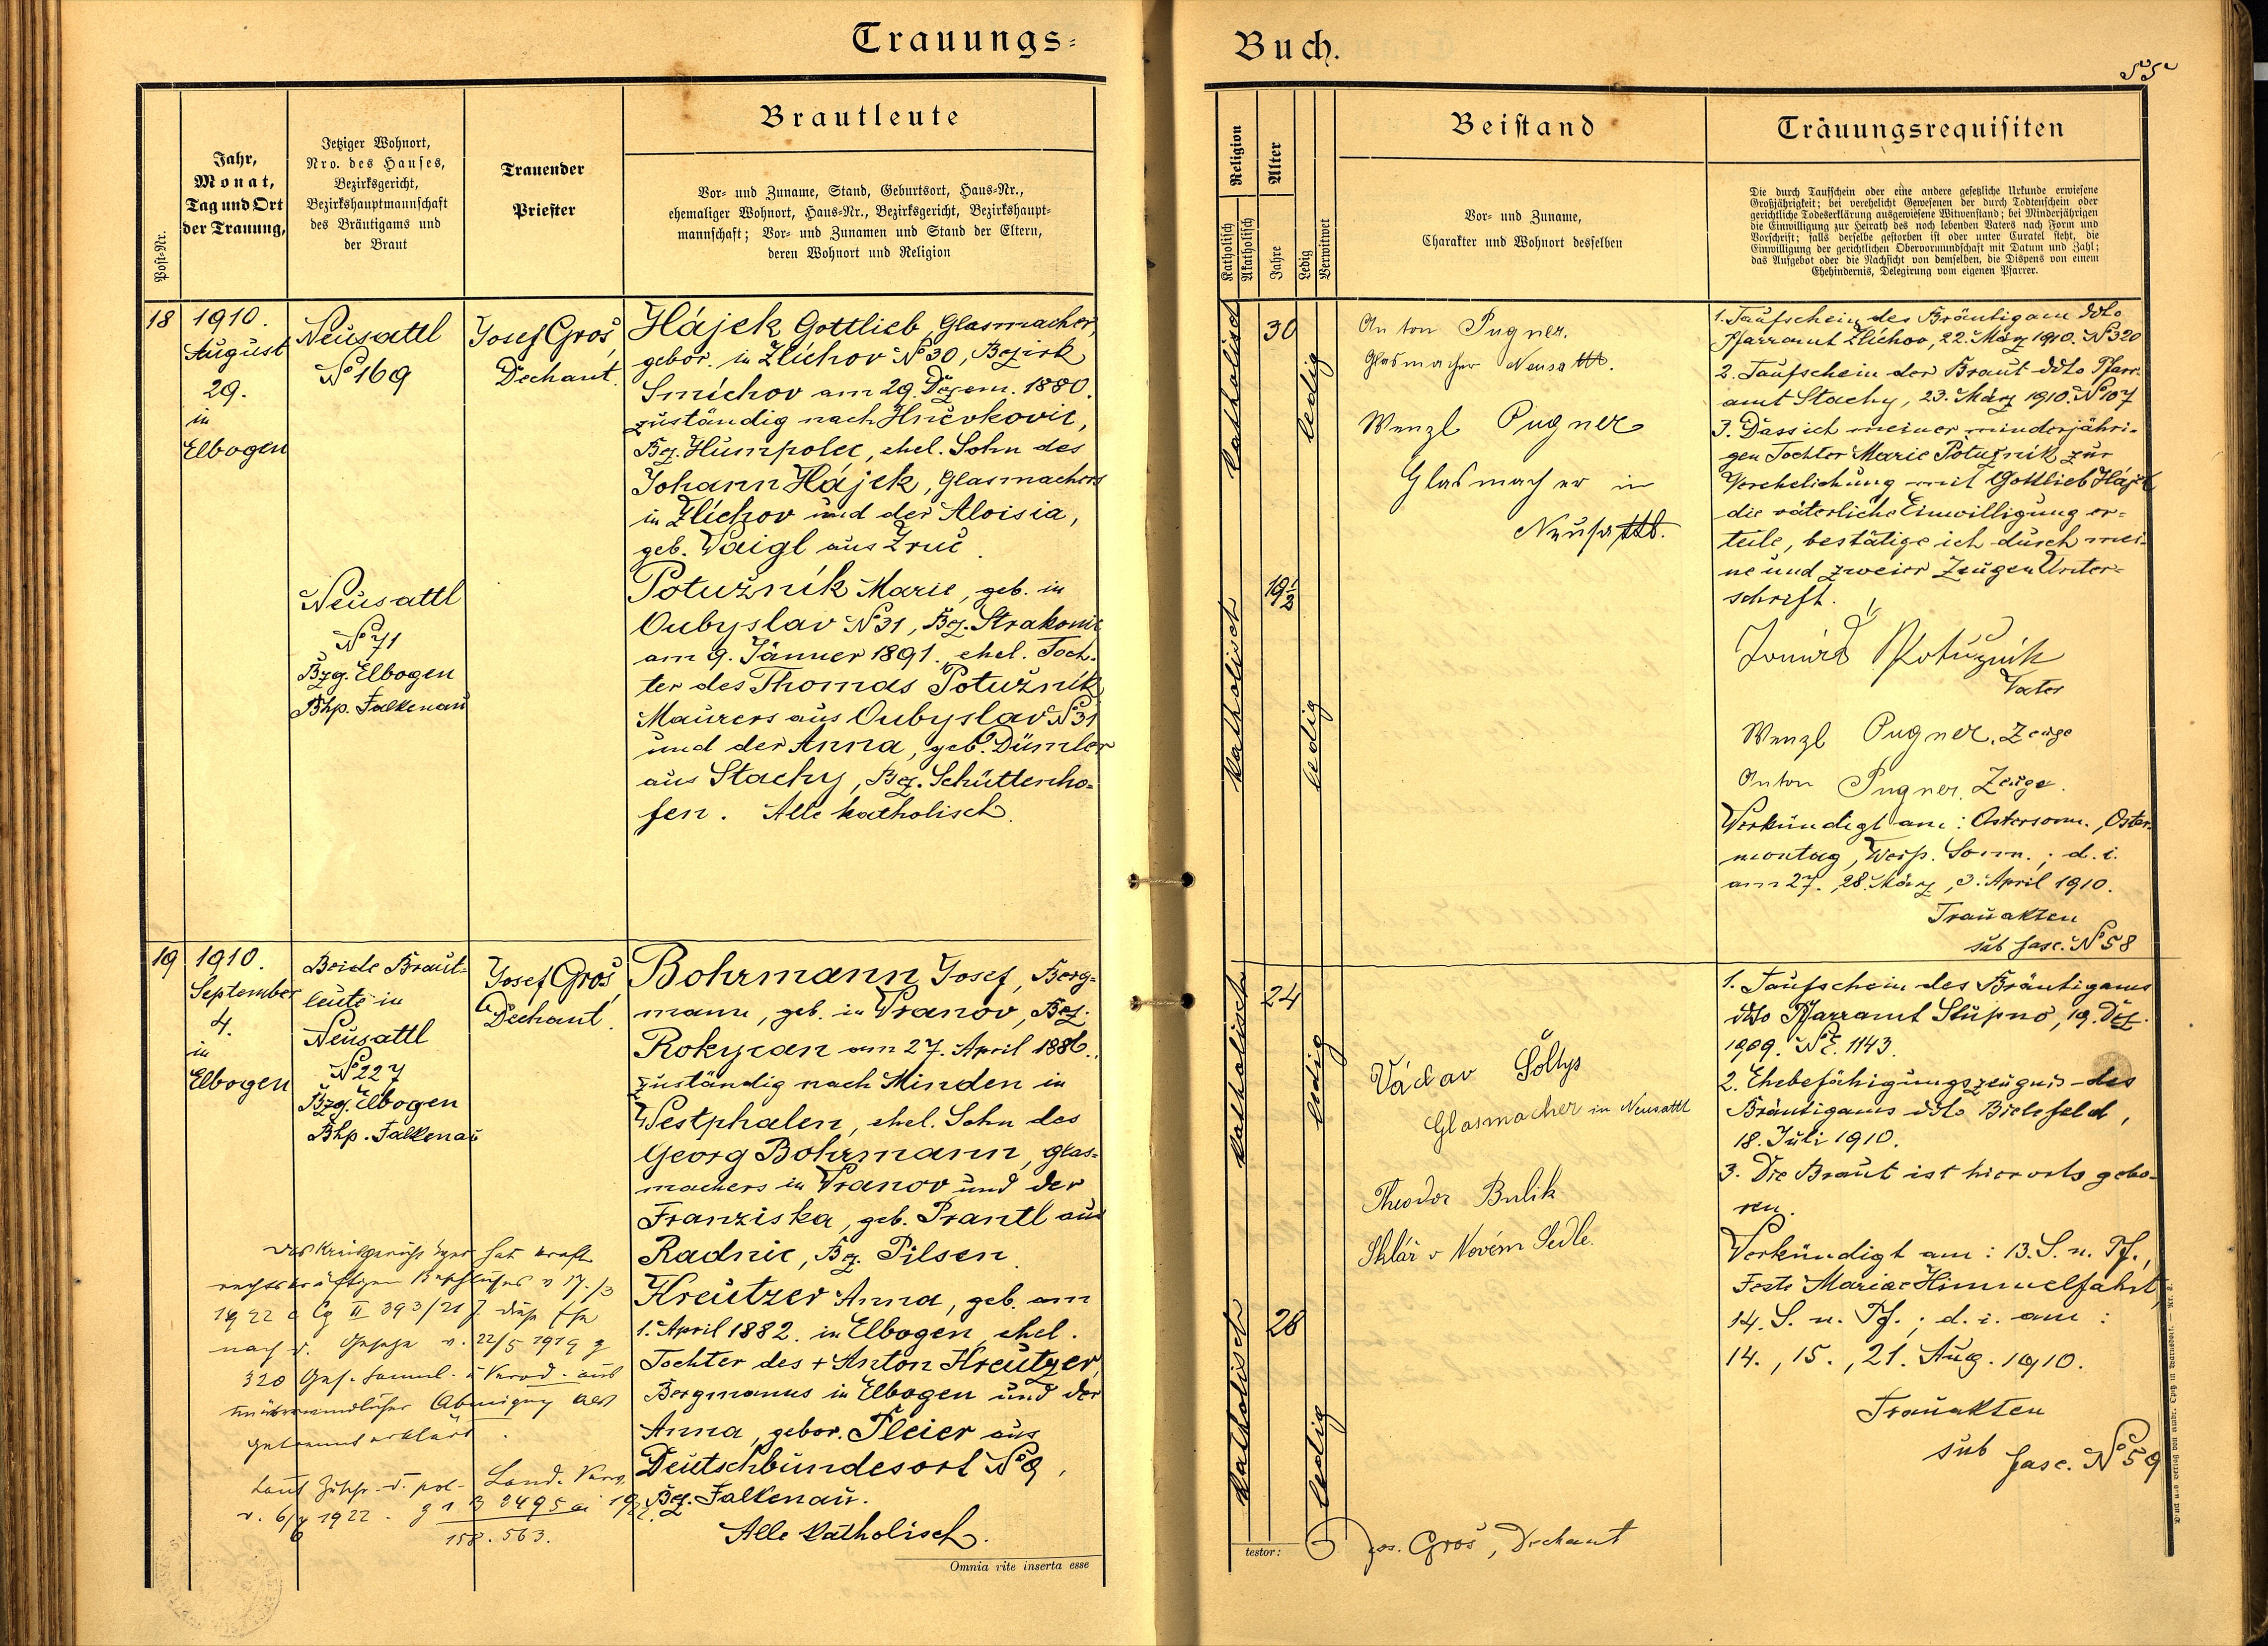 Trauungs-
Jahr,
Monat,
Tag und Ort
der Trauung,
Jetziger Wohnort,
Nro. des Hauses,
Bezirksgericht,
Bezirkshauptmannschaft
des Bräutigams und
der Braut
Trauender
Priester
Brautleute
Vor- und Zuname, Stand, Geburtsort, Haus-Nr.,
ehemaliger Wohnort, Haus-Nr., Bezirksgericht, Bezirkshaupt-
mannschaft; Vor- und Zunamen und Stand der Eltern,
deren Wohnort und Religion
Post-Nr.
18
1910.
August
29.
in
Elbogen
Neusattl
No 169
Josef Groš,
Dechant.
Hájek Gottlieb, Glasmacher,
gebor. in Zlíchov No 30, Bezirk
Smíchov am 29. Dezem. 1880.
zuständig nach Hněvkovic,
Bez. Humpolec, ehel. Sohn des
Johann Hájek, Glasmachers
in Zlíchov und der Aloisia,
geb. Vaigl aus Zruč.
Neusattl
No 71
Bzg. Elbogen
Bhp. Falkenau
Potužník Marie, geb. in
Oubyslav No 31, Bez. Strakonic
am 9. Jänner 1891, ehel. Toch-
ter des Thomas Potužník
Maurers aus Oubyslav No 31
und der Anna, geb. Dümler
aus Stachy, Bez. Schüttenho-
fen. Alle katholisch.
19
1910.
September
4.
in
Elbogen
Beide Braut-
leute in
Neusattl
No 227
Bzg. Elbogen
Bhp. Falkenau
Josef Groš,
Dechant.
Bohrmann Josef, Berg-
mann, geb. in Vranov, Bez.
Rokycan am 27. April 1886.
zuständig nach Minden in
Westphalen, ehel. Sohn des
Georg Bohrmann, Glas-
machers in Vranov und der
Franziska, geb. Prantl aus
Radnic, Bez. Pilsen.
Kreutzer Anna, geb. am
1. April 1882. in Elbogen, ehel.
Tochter des + Anton Kreutzer,
Bergmanns in Elbogen und der
Anna, gebor. Pleier aus
Deutschbundesort No 9,
Bez. Falkenau.
Alle katholisch.
Das Kreisgericht Eger hat kraft
rechtskräftigen Beschlußes v 17./3
1922 Cg II 393/21 diese Ehe
nach d. Gesetze v. 22/5 1919 Z
320 Ges. Samml. u Verod. aus
unüberwindlicher Abneigung als
getrennt erklärt.
Laut Zuschr. d. pol. Land. Verw.
v. 6/7 1922. 2495 ai 1922.
158.563.
Omnia rite inserta esse
Buch.
Religion
Katholisch
Akatholisch
Alter
Jahre
Ledig
Verwitwet
Beistand
Vor- und Zuname,
Charakter und Wohnort desselben
Trauungsrequisiten
Die durch Taufschein oder eine andere gesetzliche Urkunde erwiesene
Großjährigkeit; bei verehelicht Gewesenen der durch Todtenschein oder
gerichtliche Todeserklärung ausgewiesene Witwenstand; bei Minderjährigen
die Einwilligung zur Heirath des noch lebenden Vaters nach Form und
Vorschrift; falls derselbe gestorben ist oder unter Curatel steht, die
Einwilligung der gerichtlichen Obervormundschaft mit Datum und Zahl;
das Aufgebot oder die Nachsicht von demselben, die Dispens von einem
Ehehindernis, Delegirung vom eigenen Pfarrer.
katholisch
30
ledig
Anton Pugner.
Glasmacher Neusattl.
Wenzl Pugner
Glasmacher in
Neusattl.
katholisch
19½
ledig
1. Taufschein des Bräutigam ddto
Pfarramt Zlíchov, 22. März 1910. No 320
2. Taufschein der Braut ddto Pfarr-
amt Stachy, 23. März 1910. No 107
3. Dass ich meiner minderjähri-
gen Tochter Marie Potužník zur
Verehelichung mit Gottlieb Hájek
die väterliche Einwilligung er-
teile, bestätige ich durch mei-
ne und zweier Zeugen Unter-
schrift.
Tomáš Potužník
Vater
Wenzl Pugner, Zeuge
Anton Pugner, Zeuge.
Verkündigt am: Ostersonn., Oster-
montag, Weiß. Sonn.; d. i.
am 27., 28. März, 3. April 1910.
Trauakten
sub fasc. No 58
katholisch
24
ledig
Václav Šoltys
Glasmacher in Neusattl
Theodor Bulik
Sklář v Novém Sedle.
katholisch
28
ledig
1. Taufschein des Bräutigams
ddto Pfarramt Stupno, 19. Dez.
1909. No E. 1143.
2. Ehebefähigungszeugnis des
Bräutigams ddto Bielefeld,
18. Juli 1910.
3. Die Braut ist hierorts gebo-
ren.
Verkündigt am: 13. S. n. Pf.,
Feste Mariae Himmelfahrt,
14. S. n. Pf.; d. i. am:
14., 15., 21. Aug. 1910.
Trauakten
sub fasc. No 59
testor:
Jos. Groš, Dechant